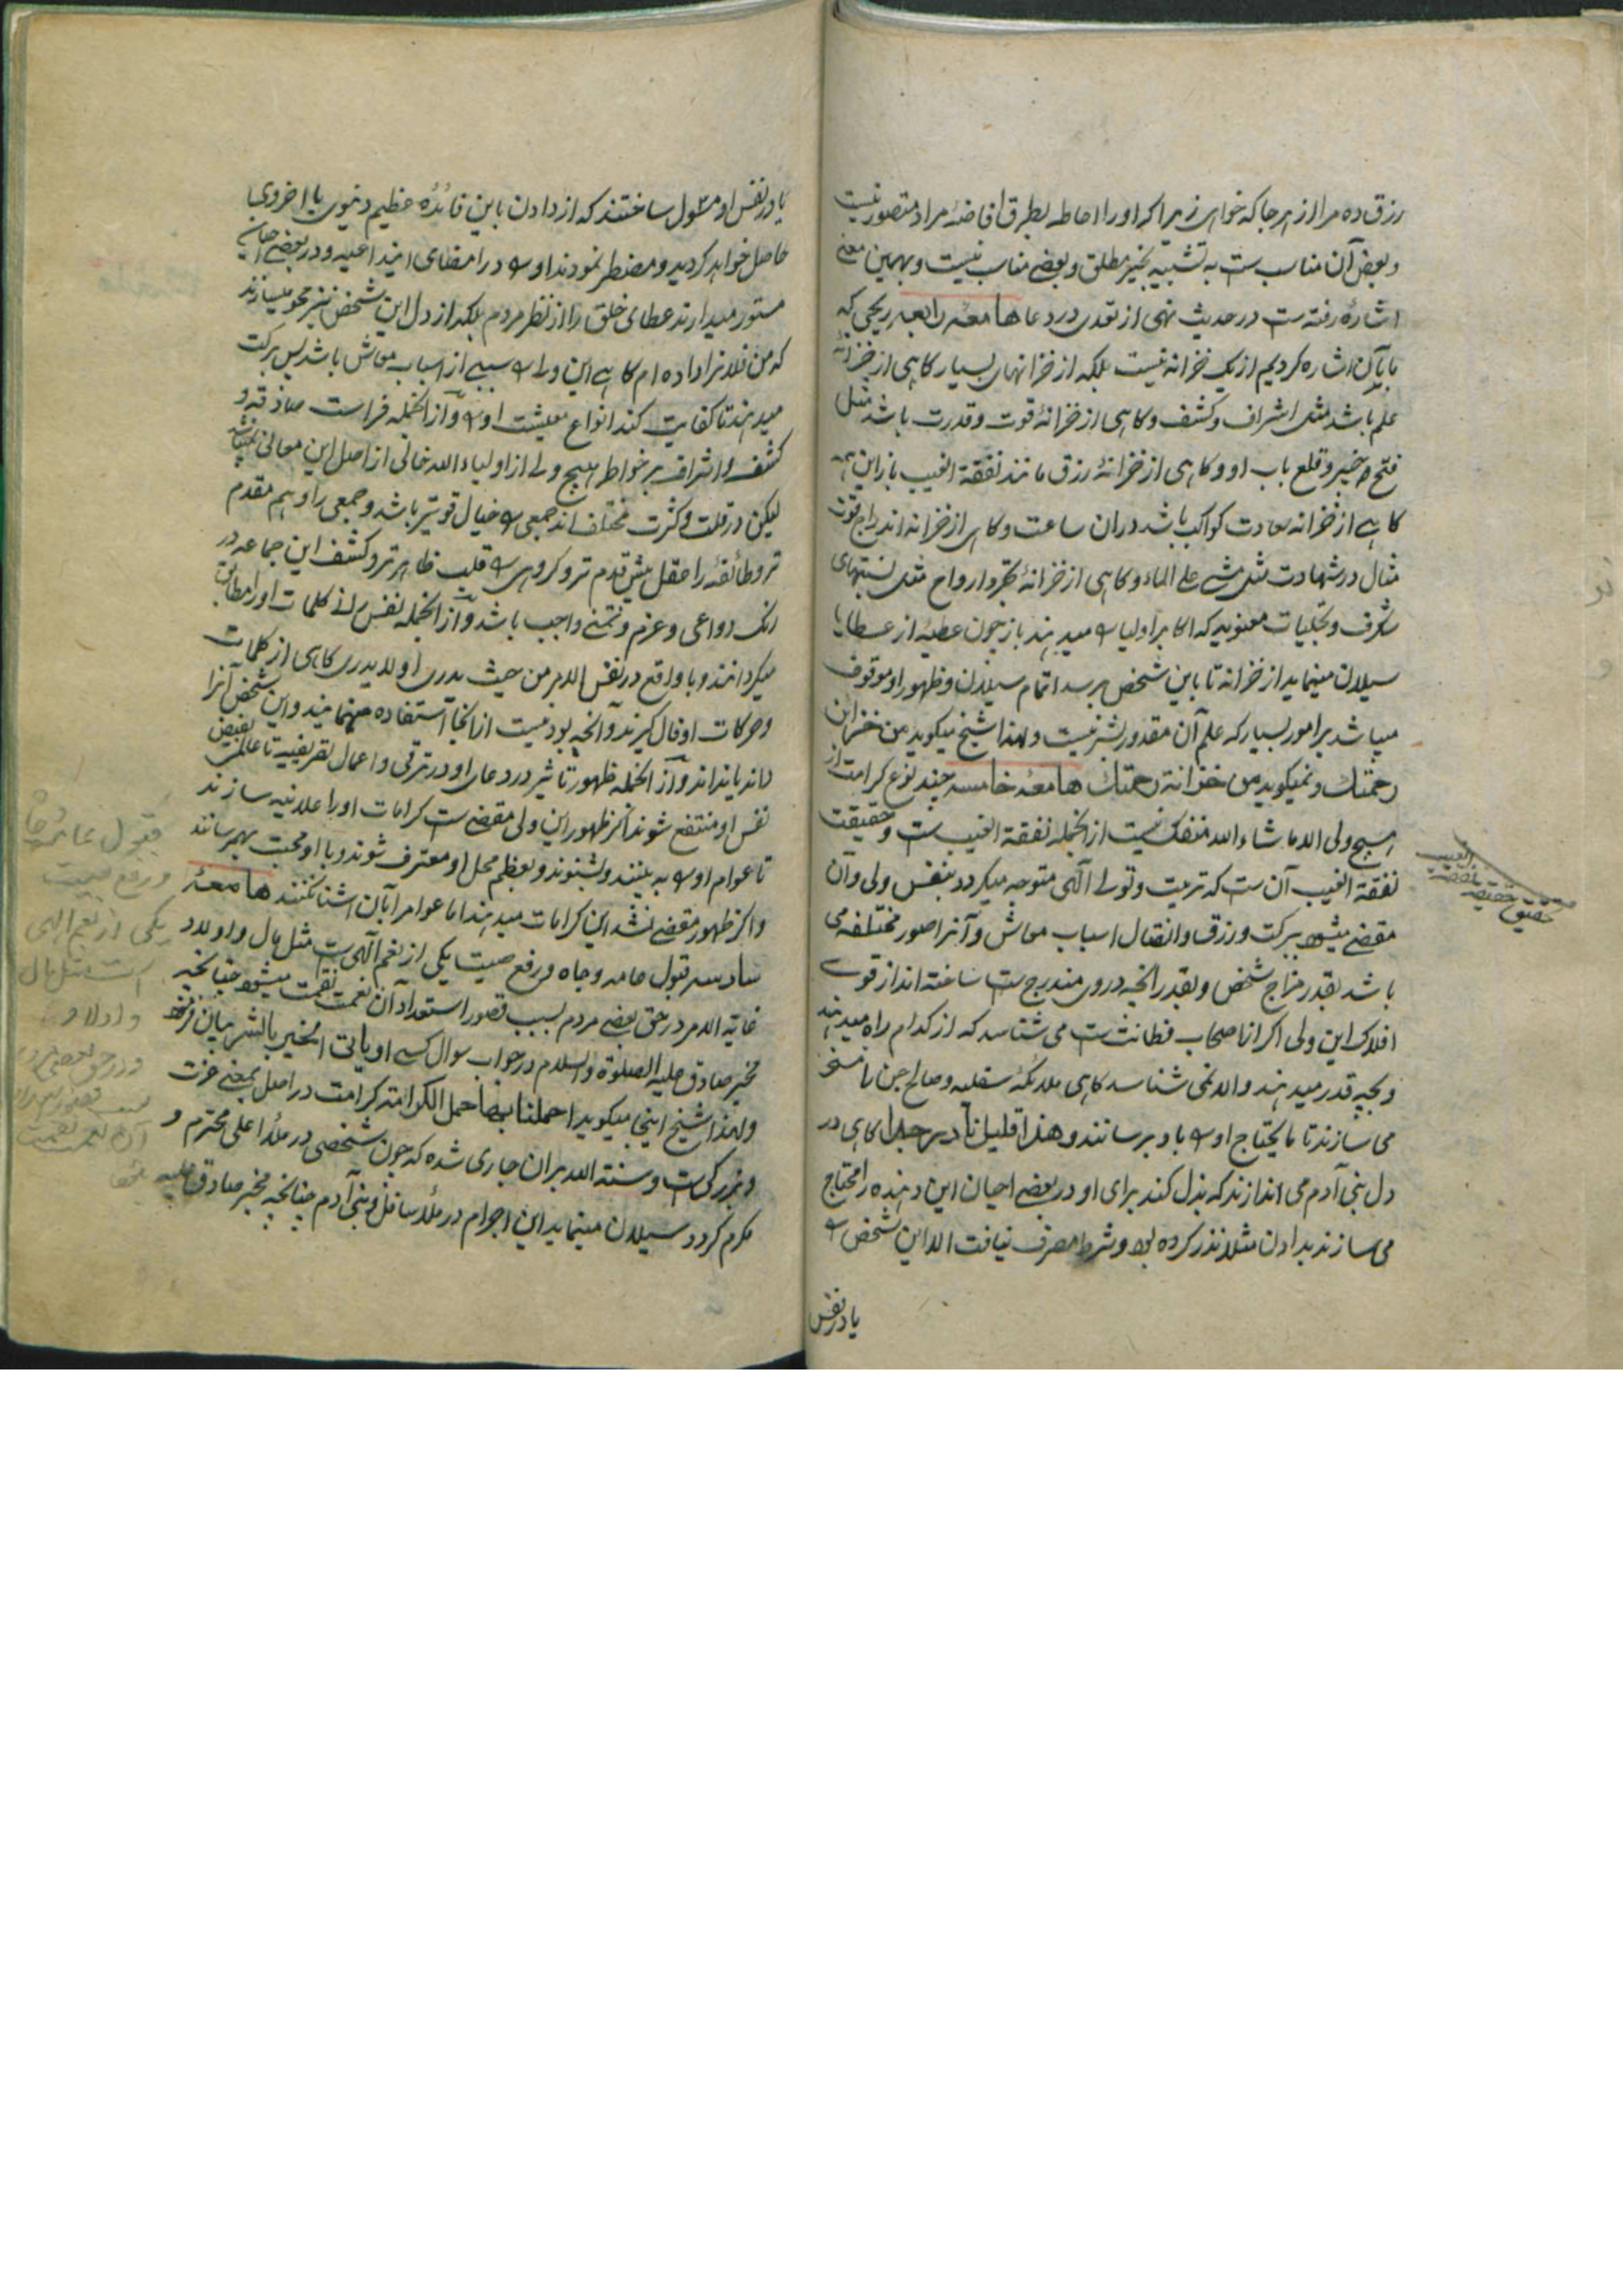 رزق ده مرا از هر جا که خواهی زیرا که او را احاطه بطریق افاضهٔ مراد متصور نیست
و بعض آن مناسب ست به تشبیه بخیر مطلق و بعضے مناسب نیست و بهمین معنے
اشاره رفته ست در حدیث نهی از تعدی در دعا هامعه رابعه ریحی که
بآن اشاره کردیم از یک خزانه نیست بلکه از خزانهای بسیار کاهی از خزانهٔ
علم باشد مثل اشراف و کشف و کاهی از خزانهٔ قوت و قدرت باشد مثل
فتح خیبر و قلع باب او و کاهی از خزانهٔ رزق مانند نفقة الغیب باز این همه
کاهے از خزانه سعادت کواکب باشد دران ساعت و کاهی از خزانه اندراج قوت
مثال در شهادت مثل مشے علی الماء و کاهی از خزانهٔ تجرد ارواح مثل نسبتهای
شکرف و تجلیات معنویه که اکابر اولیا را میدهند باز چون عطیهٔ از عطایا
سیلان مینماید از خزانه تا باین شخص برسد اتمام سیلان و ظهور او موقوف
میباشد بر امور بسیار که علم آن مقدور بشر نیست و لهذا شیخ میکوید من خزائن
رحمتك و نمیکوید من خزانة رحمتك هامعه خامسه چند نوع کرامت از
هیچ ولی الا ما شاء الله منفک نیست از انجمله نفقة الغیب ست و حقیقت
نفقة الغیب آن ست که تربیت و تولے الٰهی متوجه میکردد بنفس ولی و آن
مقضے میشود ببرکت در رزق و انتقال اسباب معاش و آنرا صور مختلفه می
باشد بقدر مزاج شخص و بقدر آنچه در وی مندرج ست ساخته اند از قوے
افلاک این ولی اکر از اصحاب فطانت ست می شناسد که از کدام راه میدهند
و بچه قدر میدهند و الا نمی شناسد کاهی ملائکهٔ سفلیه و صالح جن را مسخر
می سازند تا ما یحتاج او را باو برسانند و هذا قلیل نادر جدا کاهی در
دل بنی آدم می اندازند که بذل کند برای او و در بعضے احیان این دهنده را محتاج
می سازند بدادن مثلا نذر کرده بود و شرط مصرف نیافت الا این شخص را
یا در نفس
حقیقت نفقة الغیب
یا در نفس او مسئول ساختند که از دادن باین فائدهٔ عظیم دنیوی یا اخروی
حاصل خواهد کردید و مضطر نمودند او را در امضای این داعیه و در بعضے احیان
مستور میدارند عطای خلق را از نظر مردم بلکه از دل این شخص نیز محو میسازند
که من فلانرا داده ام کاهے این ولی را سببے از اسباب معاش باشد پس برکت
میدهند تا کفایت کند انواع معیشت او را و از انجمله فراست صادقه و
کشف و اشراف بر خواطر هیچ ولے از اولیاء الله خالی از اصل این معانی نمیباشد
لیکن در قلت و کثرت مختلف اند جمعی را خیال قوی تر باشد و جمعی را وهم مقدم
تر و طائفه را عقل پیش قدم تر و کروهی را قلب ظاهر تر و کشف این جماعه در
رنک دواعی و عزم و تمنے واجب باشد و از انجمله نفس را از کلمات او را مطابق
میکردانند و با واقع در نفس الامر من حیث یدری او لا یدری کاهی از کلمات
و حرکات او فال کیرند و آنچه بودنیست از انجا استفاده مینمایند و این شخص آنرا
داند یا نداند و از انجمله ظهور تاثیر در دعای او در ترقی و اعمال تصریفیه تا عالمے بفیض
نفس او منتفع شوند اکر ظهور این ولی مقضے ست کرامات او را علانیه سازند
تا عوام او را به بینند و بشنوند و بعظم محل او معترف شوند و با او محبت بهم رسانند
و اکر ظهور مقضے نشد این کرامات میدهند اما عوام را بآن آشنا نکنند هامعهٔ
سادسه قبول عامه و جاه و رفع صیت یکی از نعم الٰهی ست مثل مال و اولاد
غایة الامر در حق بعضے مردم بسبب قصور استعداد آن نعمت نقمت میشود چنانچه
مخبر صادق علیه الصلوة و السلام در جواب سوال کسے او یاتی الخیر بالشر بیان فرمود
و لهذا شیخ اینجا میکوید احملنا بها حمل الکرامة کرامت در اصل بمعنے عزت
و بزرکی ست و سنة الله بران جاری شده که چون شخصی در ملأ اعلی محترم و
مکرم کردد سیلان مینماید این احترام در ملأ سافل و بنی آدم چنانچه مخبر صادق علیه
قبول عامه و جاه
و رفع صیت
یکی از نعم الهی
است مثل مال
و اولاد
و در حق بعضی مردم
بسبب قصور استعداد
آن نعمت نقمت
میشود